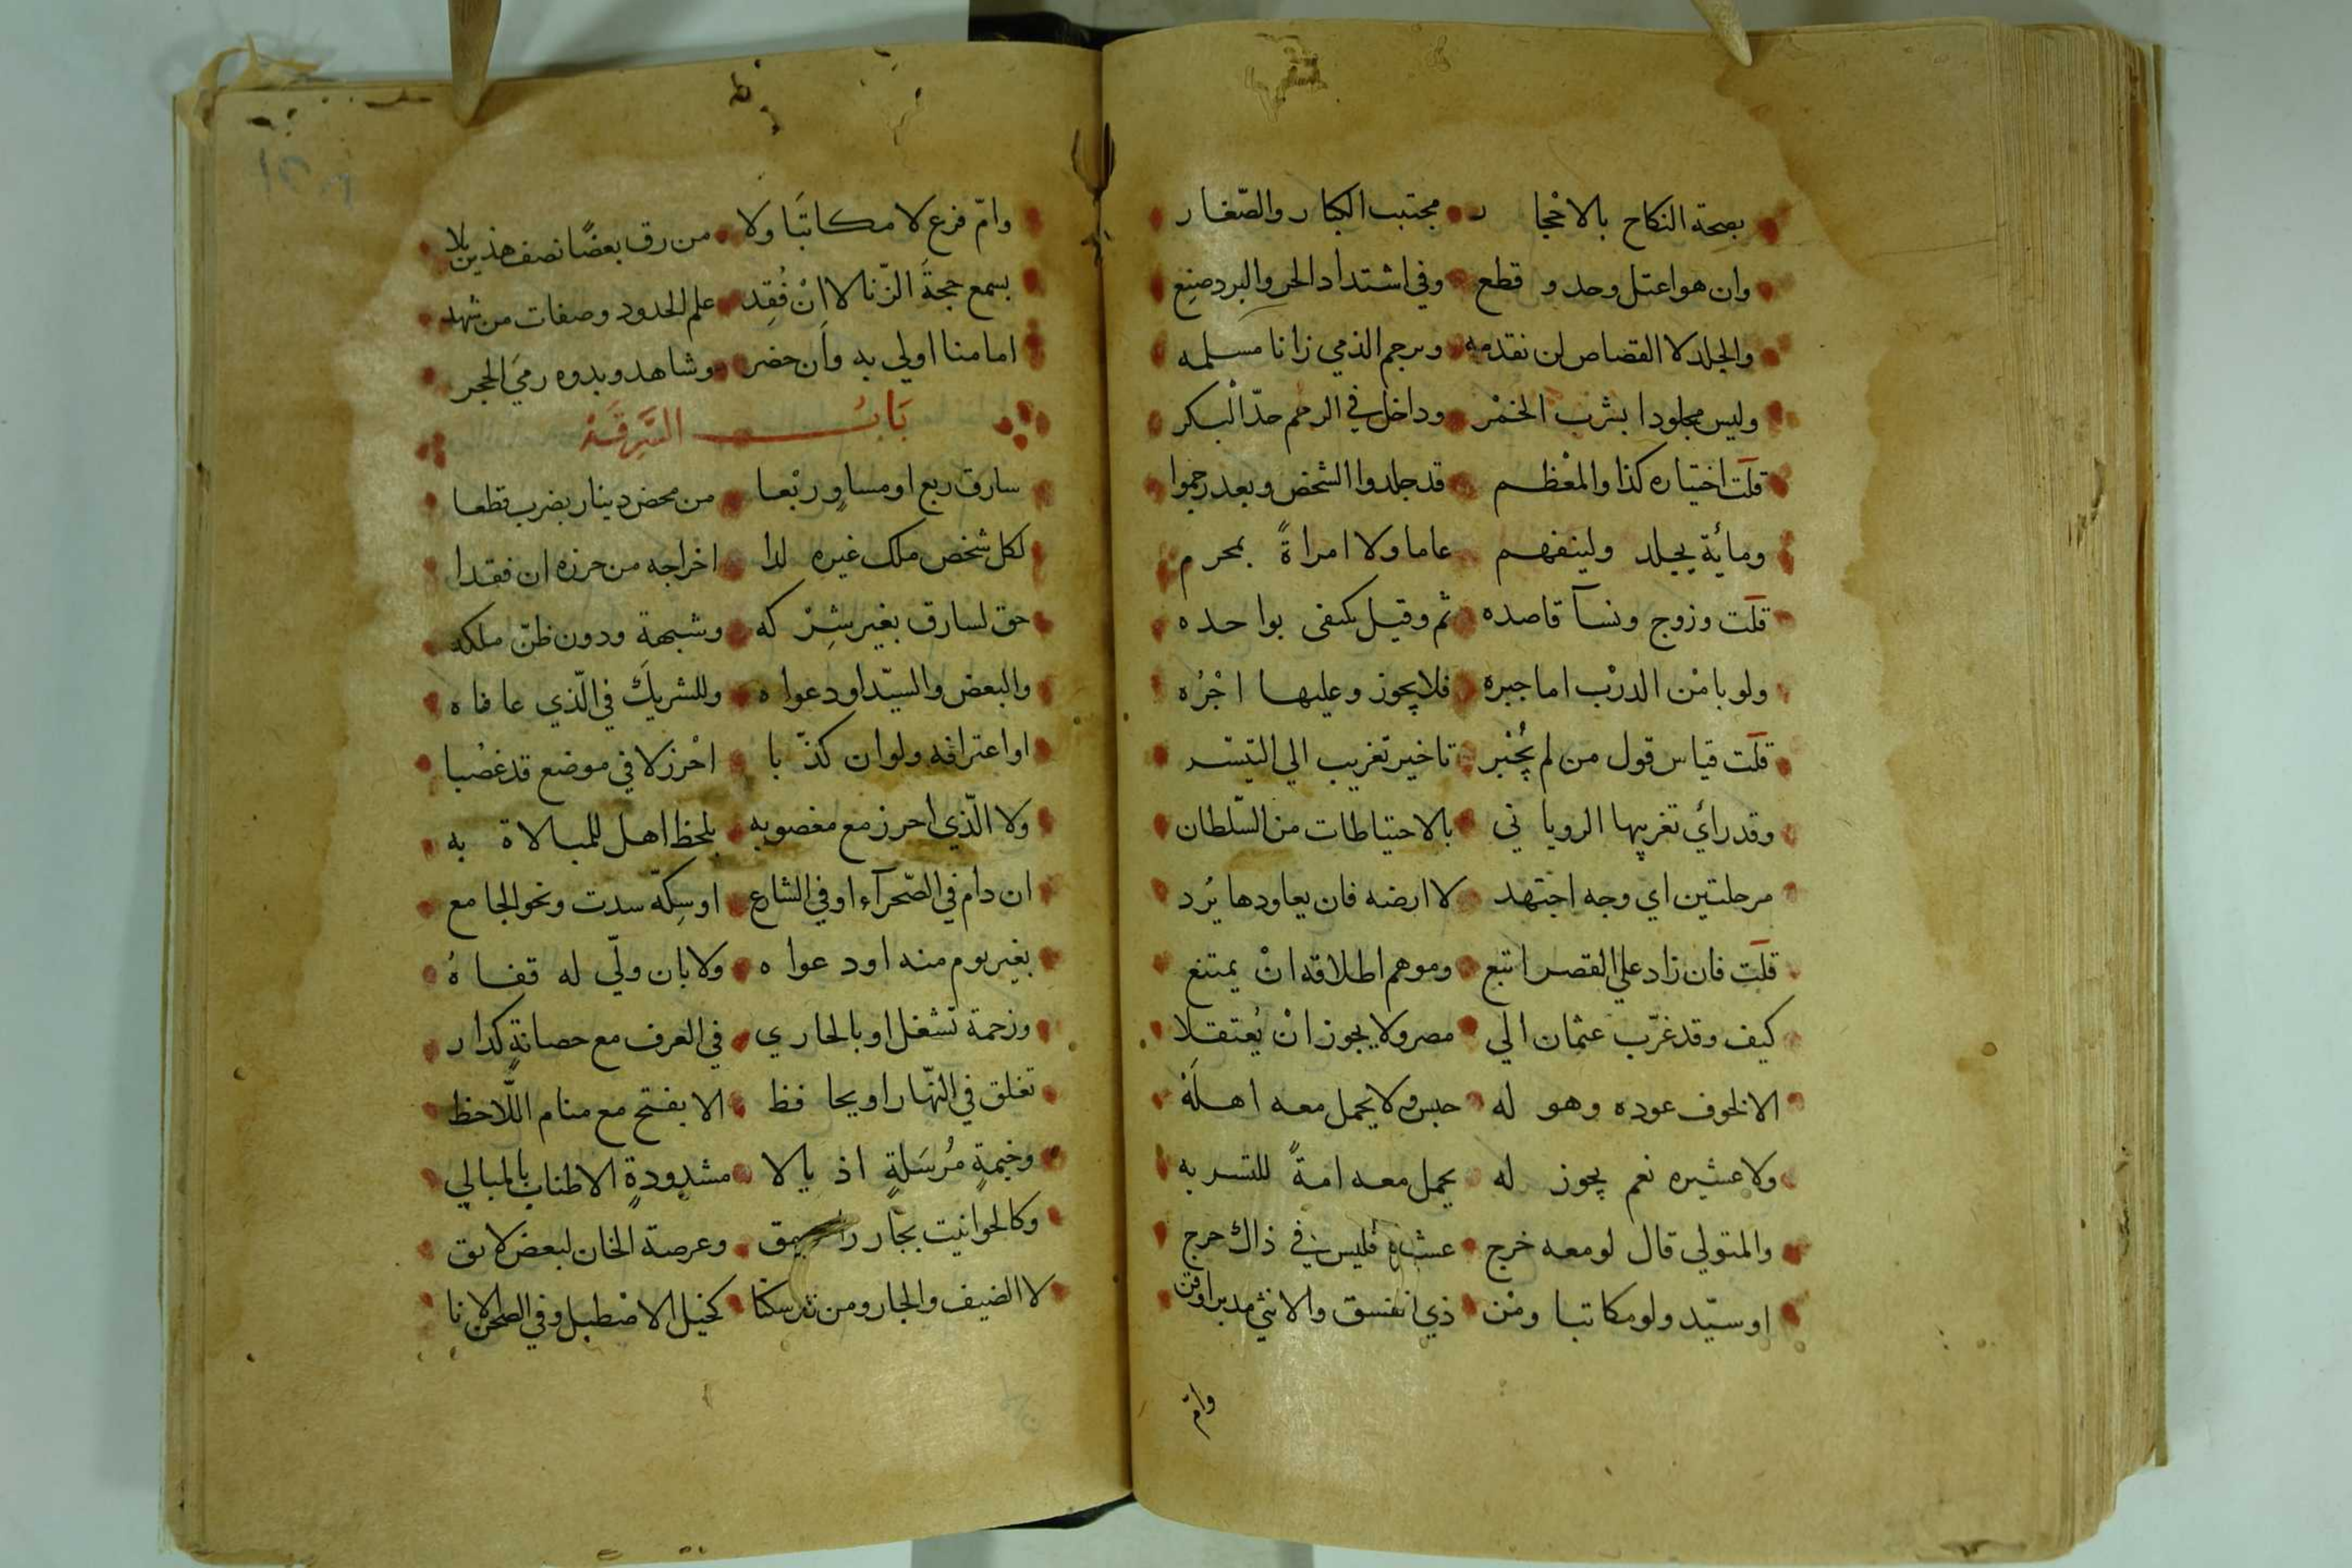 بصحة النكاح بالاحجار مجتنب الكبار والصّغار
وان هو اعتل وحد و قطع وفي اشتداد الحر والبرد صنع
والجلد لا القصاص لن نقدمه ويرجم الذمي زانا مسلمه
وليس مجلودا بشرب الخمْر وداخل في الرجم حدّ البكر
قلت اختياره كذا والمعْظم قد جلدوا الشخص وبعد رجموا
ومائة يجلد ولينفهم عاما ولا امراةً بمحرم
قلت وزوج ونسآ قاصده ثم وقيل يكتفى بواحده
ولو بامْن الدرْب اما جبره فلا يجوز وعليها اجْرُه
قلت قياس قول من لم يُجْبر تاخير تغريب الي التيسّر
وقد رأي تغريبها الروياني بالاحتياطات من السّلطان
مرحلتين اي وجه اجتهد لا ارضه فان يعاودها يُرد
قلت فان زاد علي القصر اتبع وموهم اطلاقه انْ يمتنع
كيف وقد غرّب عثمان الي مصر ولا يجوز انْ يُعتقلا
الا لخوف عوده وهو له حبس ولا يحمل معه اهلَهْ
ولا عشيره نعم يجوز له يحمل معه امةً للتسربه
والمتولي قال لو معه خرج عشيره فليس في ذاك حرج
او سيّد ولو مكاتبا ومنْ ذي فسق والانثي مدبر او قن
وامّ
وامّ فرع لا مكاتبَا ولا من رق بعضًا نصف هذين بلا
بسمع حجةَ الزّنا لا انْ فُقِد علم الحدود وصفات من شهد
امامنا اولي به وأن حضر وشاهد وبدوه رميَ الحجر
بَابُ السَّرِقَةْ
سارق ربع او مساوٍ ربْعا من محض دينار بضرب قطعا
لكل شخص ملك غيره لدا اخراجه من حرزه ان فقدا
حق لسارق بغير شِرْكه وشبهةِ ودون ظنّ ملكه
والبعض والسيّد او دعواه وللشريكِ في الّذي عافاه
او اعترافه ولو ان كذّبا احْرز لا في موضع قد غصُبا
ولا الّذي احرز مع مغصوبه بلحظ اهل للمبالاة به
ان دام في الصّحرآء او في الشارع او سِكّة سدت ونحو الجامع
بغير نوم منه او دعواه ولا بان ولّي له قفاهُ
وزحمة تشغل او بالجاري في العرف مع حصانةٍ كدار
تغلق في النّهار او يحافظ الا بفتح مع منام اللّاحظ
وخيمةٍ مُرسَلةٍ اذيالا مشدودةٍ الاطناب بالمبالي
وكالحوانيت بجار وعرصة الخان لبعض لا بق
لا الضيف والجار ومن سكنا كخيل الاصْطبل وفي الطحن لانا